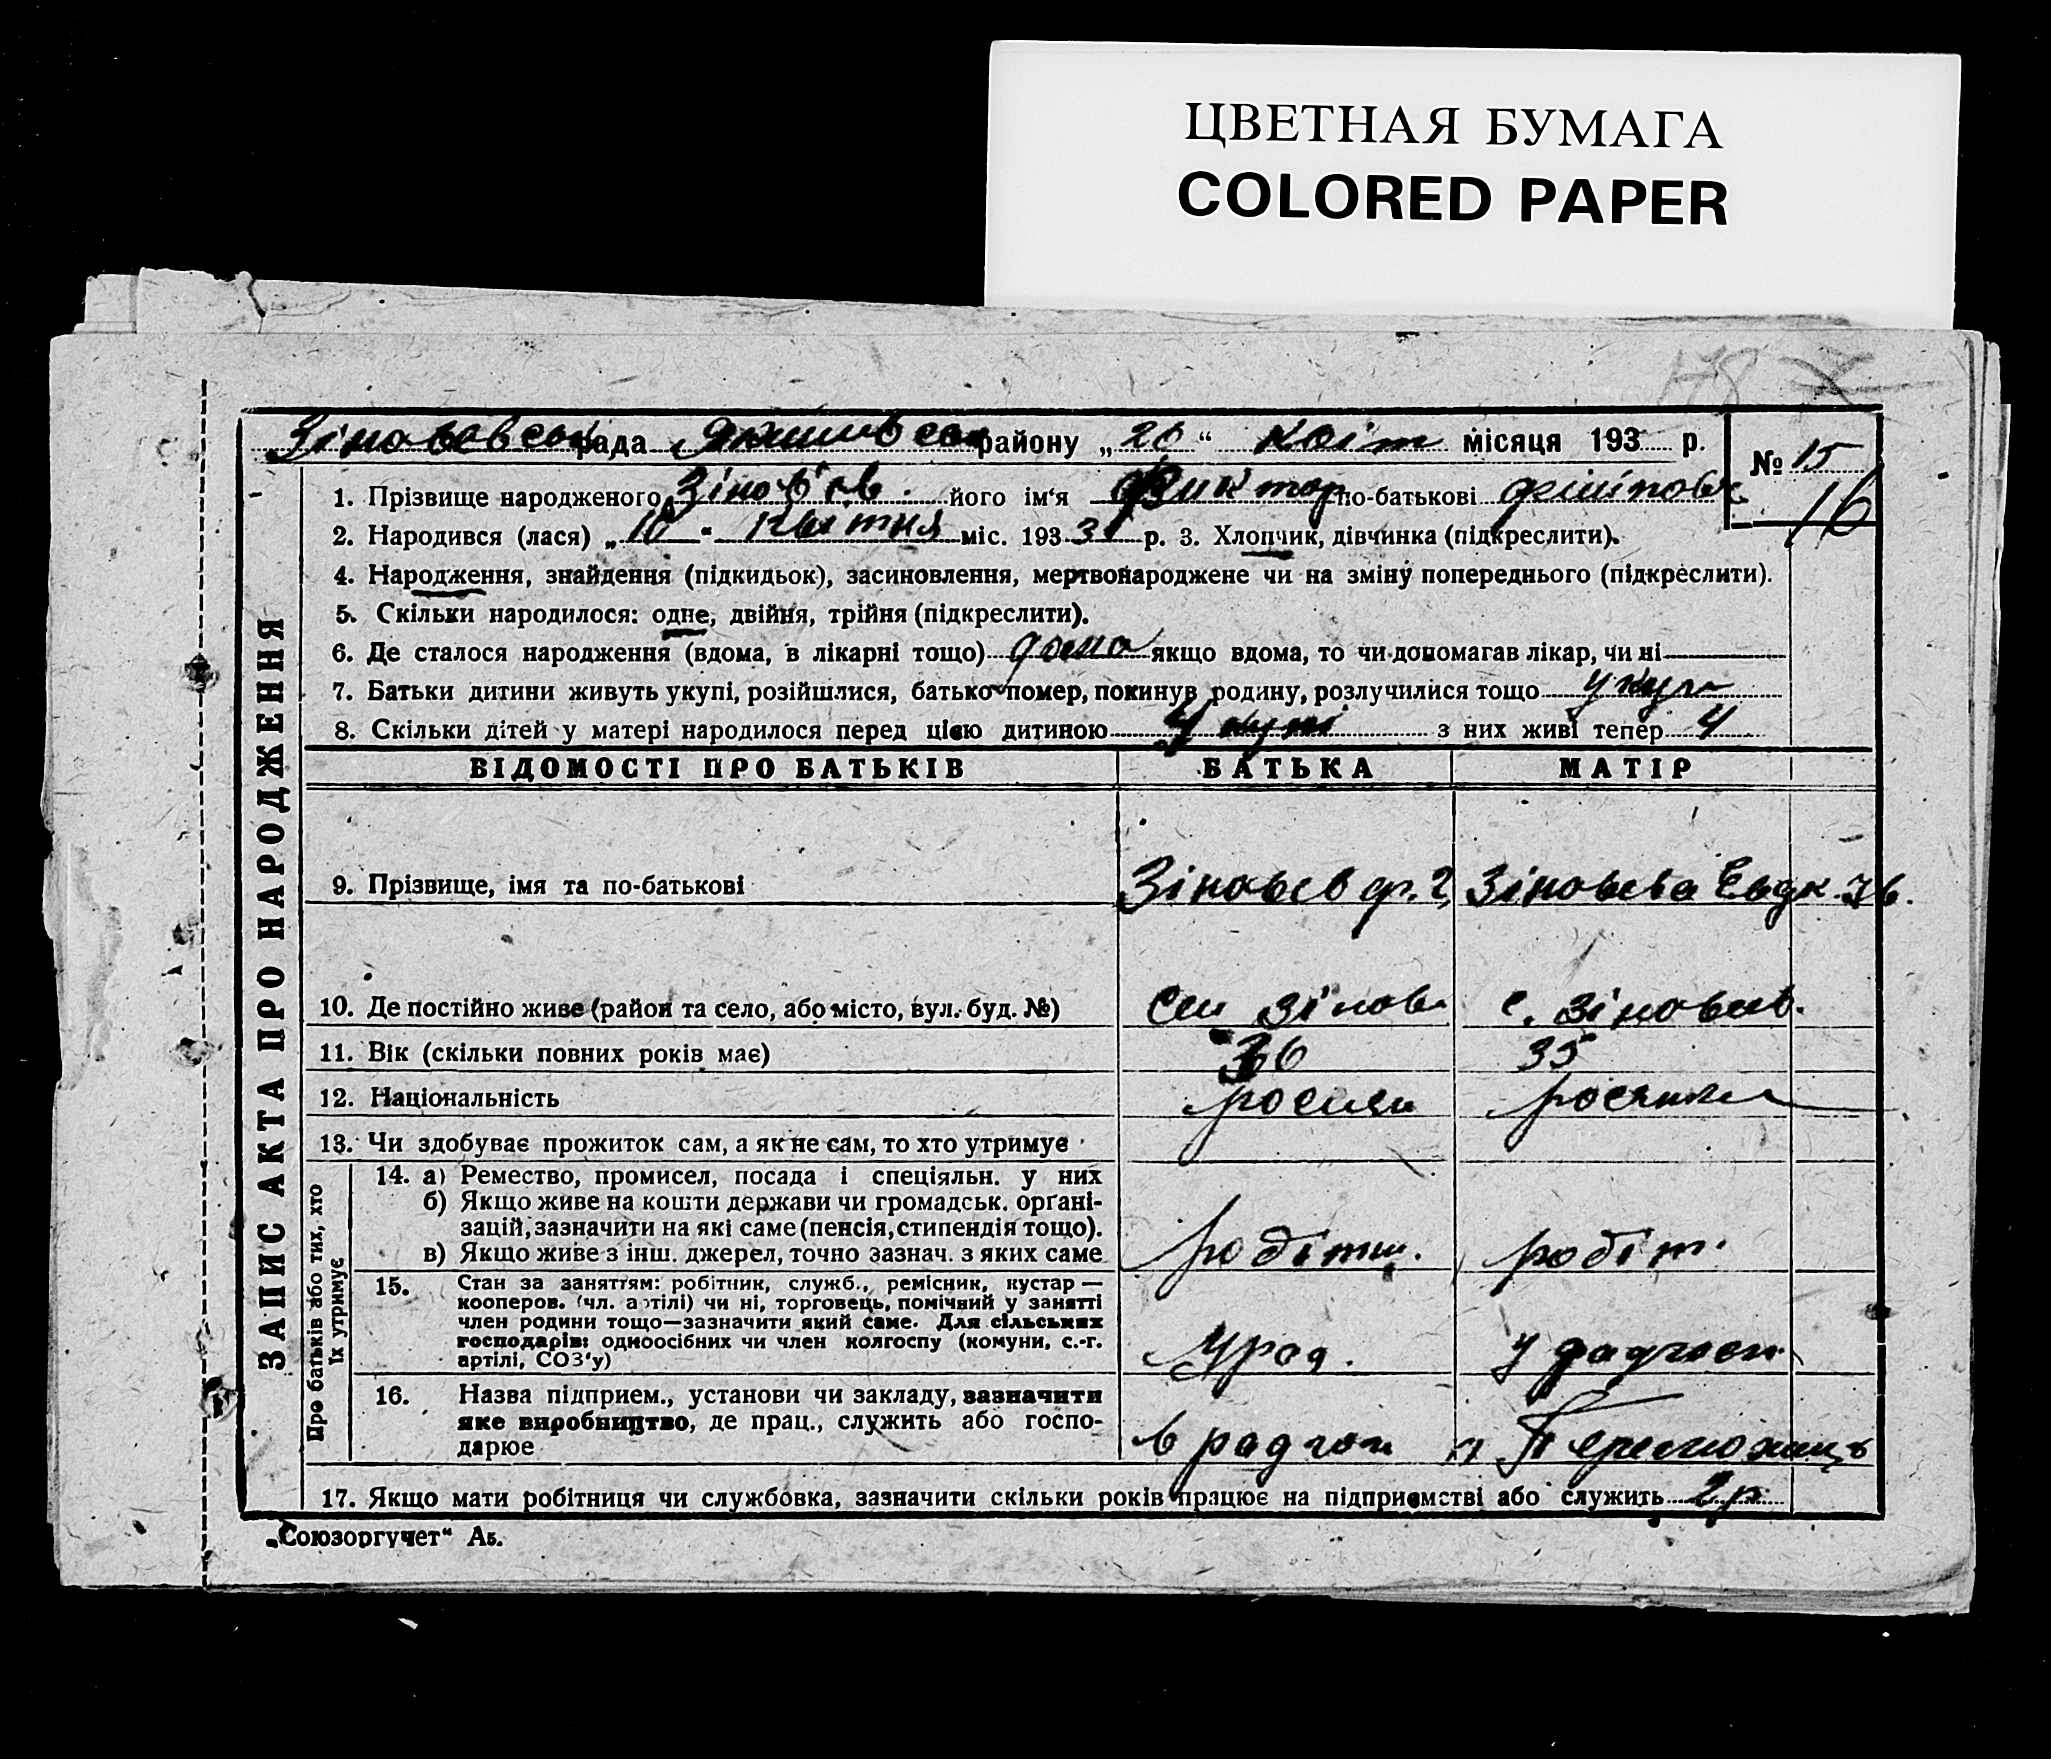 ЦВЕТНАЯ БУМАГА
COLORED PAPER
178
рада району „20“ квіт місяця 193 р.
№ 15
16
1. Прізвище народженого Зінов'єв його ім‘я Виктор по-батькові
2. Народився (лася) „10“ квітня міс. 193 3 р. 3. Хлопчик, дівчинка (підкреслити).
4. Народження, знайдення (підкидьок), засиновлення, мертвонароджене чи на зміну попереднього (підкреслити).
5. Скільки народилося: одне, двійня, трійня (підкреслити).
6. Де сталося народження (вдома, в лікарні тощо) дома якщо вдома, то чи допомагав лікар, чи ні
7. Батьки дитини живуть укупі, розійшлися, батько помер, покинув родину, розлучилися тощо укупі
8. Скільки дітей у матері народилося перед цією дитиною 4 з них живі тепер 4
ВІДОМОСТІ ПРО БАТЬКІВ БАТЬКА МАТІР
9. Прізвище, імя та по-батькові Зіновєв ф. Г. Зіновєва Евдк.
10. Де постійно живе (район та село, або місто, вул. буд. №) Зінов с. Зіновєв.
11. Вік (скільки повних років має) 36 35
12. Національність
13. Чи здобуває прожиток сам, а як не сам, то хто утримує
14. а) Ремество, промисел, посада і спеціяльн. у них
б) Якщо живе на кошти держави чи громадськ. орґані-
зацій, зазначити на які саме (пенсія, стипендія тощо).
в) Якщо живе з інш. джерел, точно зазнач. з яких саме робітн. робіт.
15. Стан за заняттям: робітник, служб., ремісник, кустар —
кооперов. (чл. артілі) чи ні, торговець, помічний у занятті
член родини тощо—зазначити який саме. Для сільських
господарів: одноосібних чи член колгоспу (комуни, с.-г.
артілі, СОЗ'у) У рад. у радгосп
16. Назва підприєм., установи чи закладу, зазначити
яке виробництво, де прац., служить або госпо-
дарює в радгосп
17. Якщо мати робітниця чи службовка, зазначити скільки років працює на підприємстві або служить 2 р
ЗАПИС АКТА ПРО НАРОДЖЕННЯ
Про батьків або тих, хто
їх утримує
„Союзоргучет“ Аь.